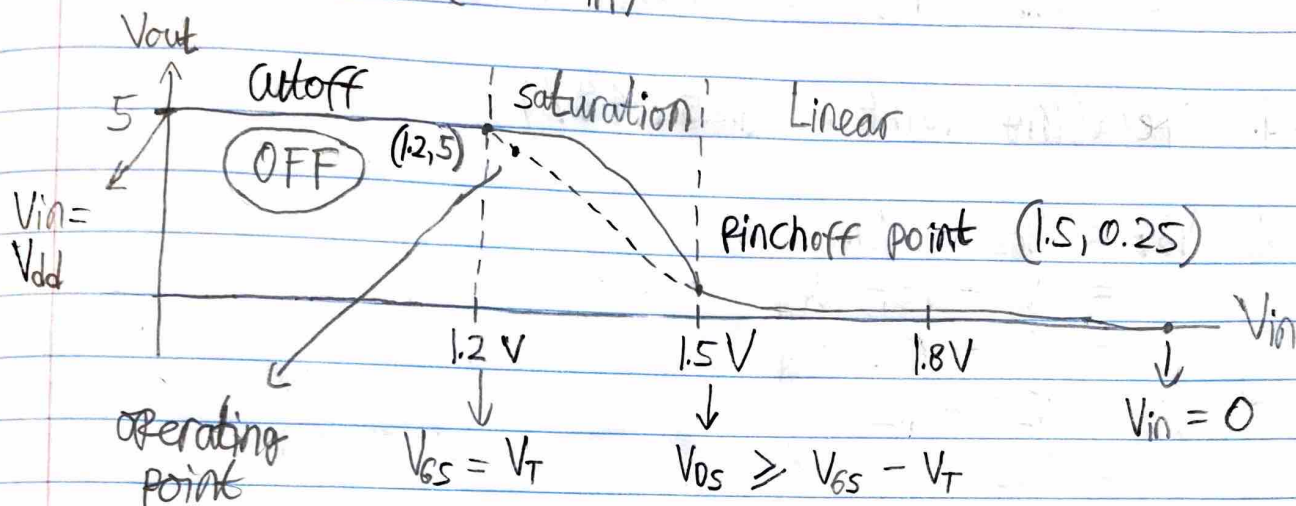 Vout
5
cutoff
saturation
Linear
OFF
(1.2,5)
Vin=
Vdd
Pinchoff point (1.5, 0.25)
Vin
1.2 V
1.5 V
1.8V
operating
point
VGS = VT
VDS ≥ VGS - VT
Vin = 0